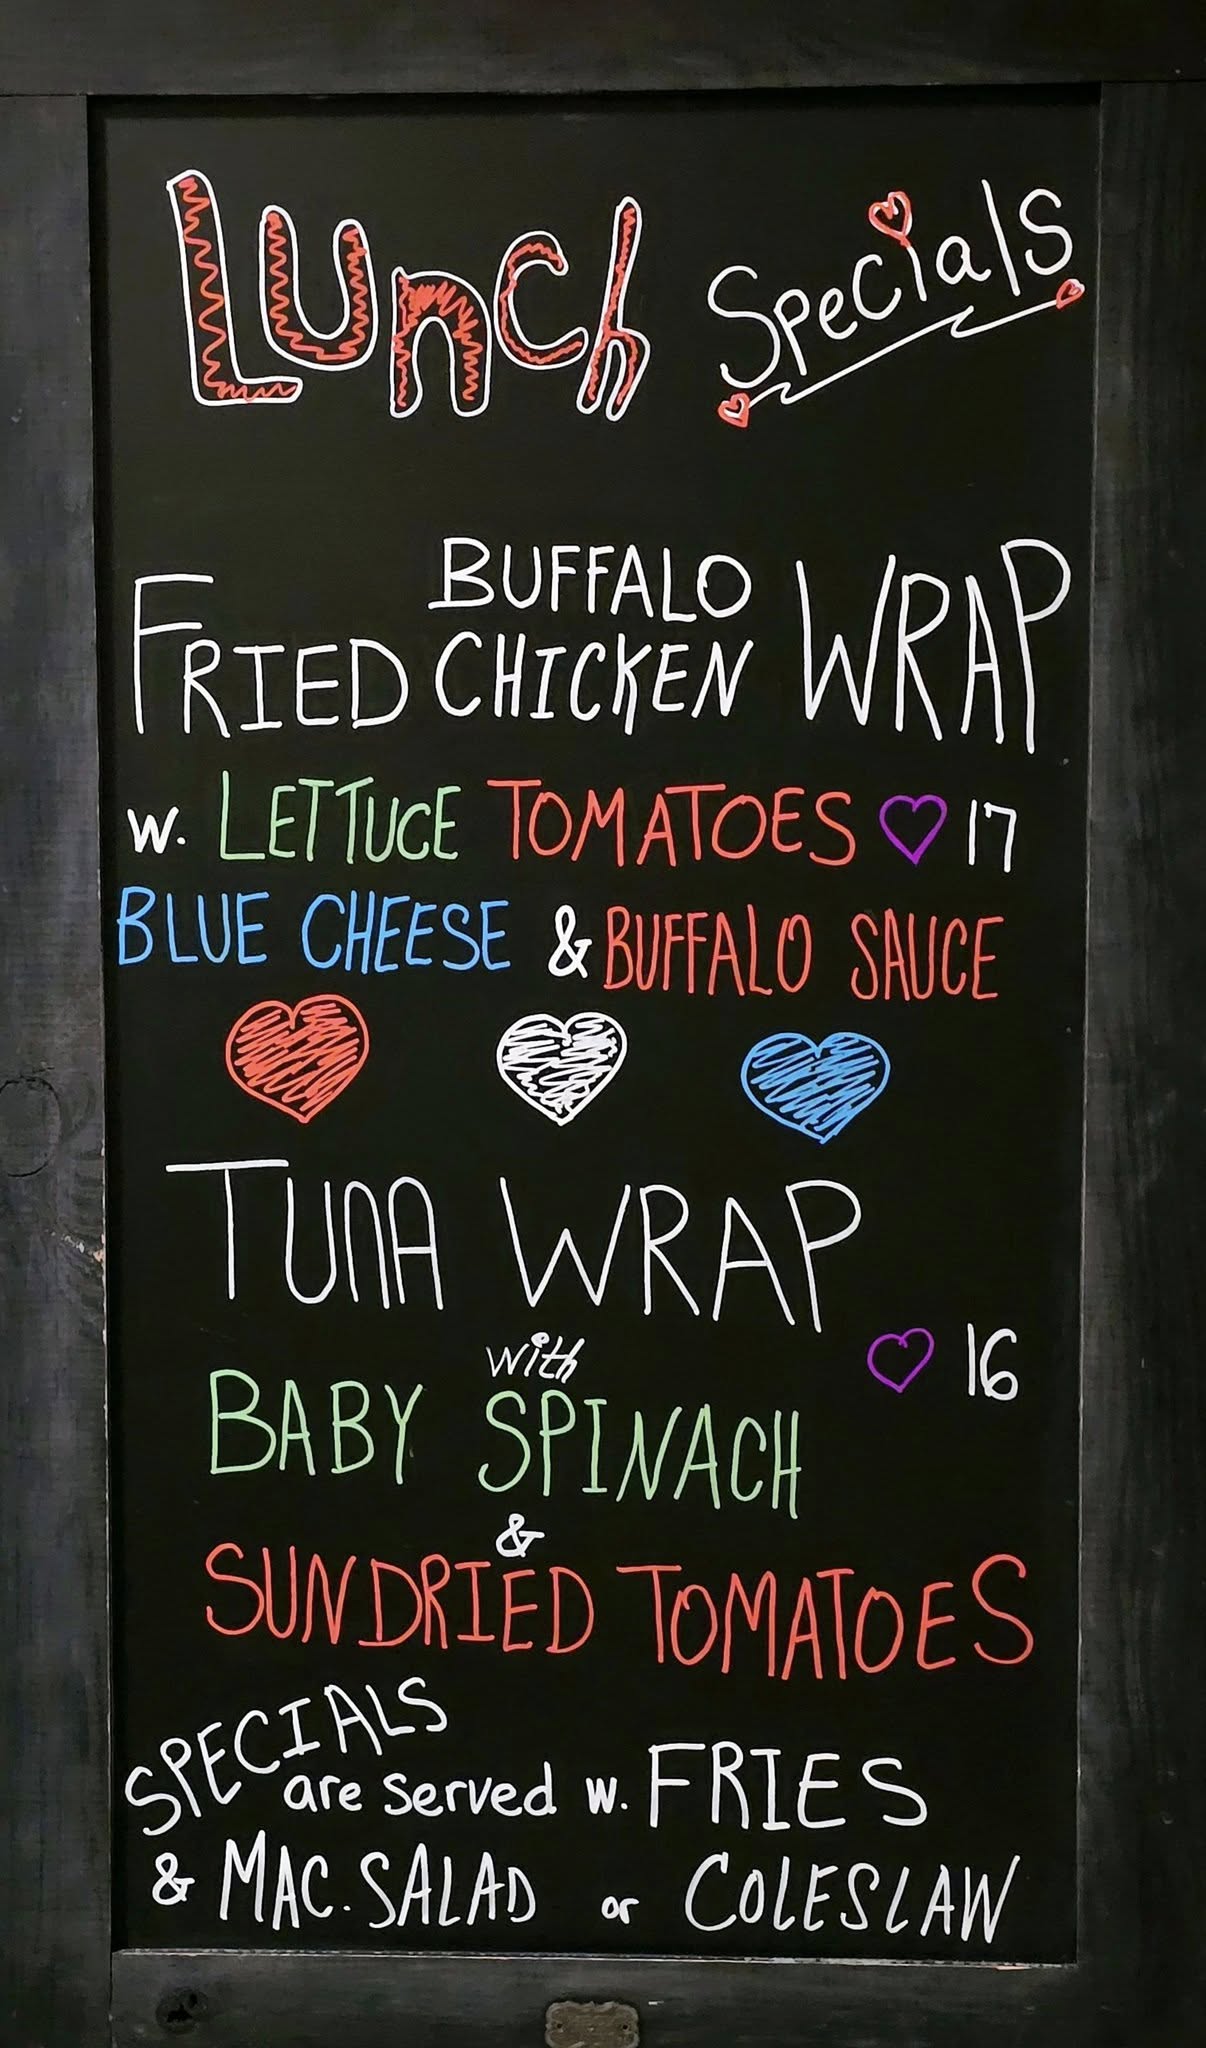 Lunch Specials
BUFFALO
FRIED CHICKEN WRAP
w. LETTUCE TOMATOES 17
BLUE CHEESE & BUFFALO SAUCE
TUNA WRAP
with
16
BABY SPINACH
&
SUNDRIED TOMATOES
SPECIALS
are served w. FRIES
& MAC. SALAD or COLESLAW